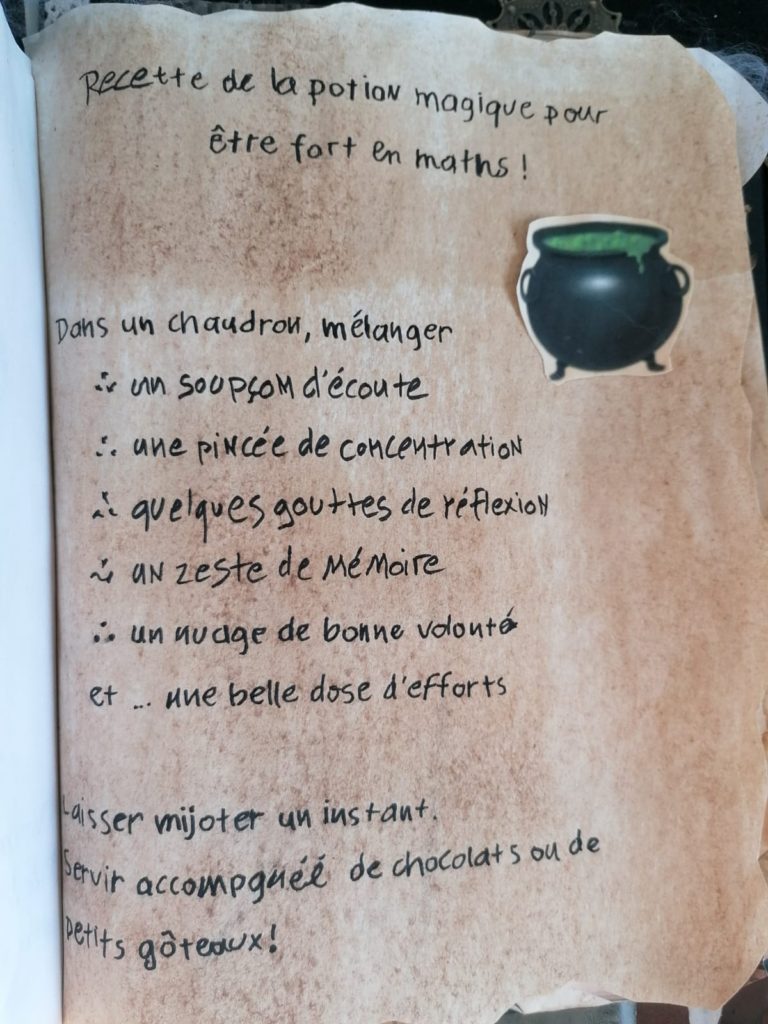 Recette de la potion magique pour
être fort en maths !
Dans un chaudron, mélanger
∴ un soupçon d'écoute
∴ une pincée de concentration
∴ quelques gouttes de réflexion
∴ un zeste de mémoire
∴ un nuage de bonne volonté
et ... une belle dose d'efforts
Laisser mijoter un instant.
Servir accompgnéé de chocolats ou de
petits gôteaux!